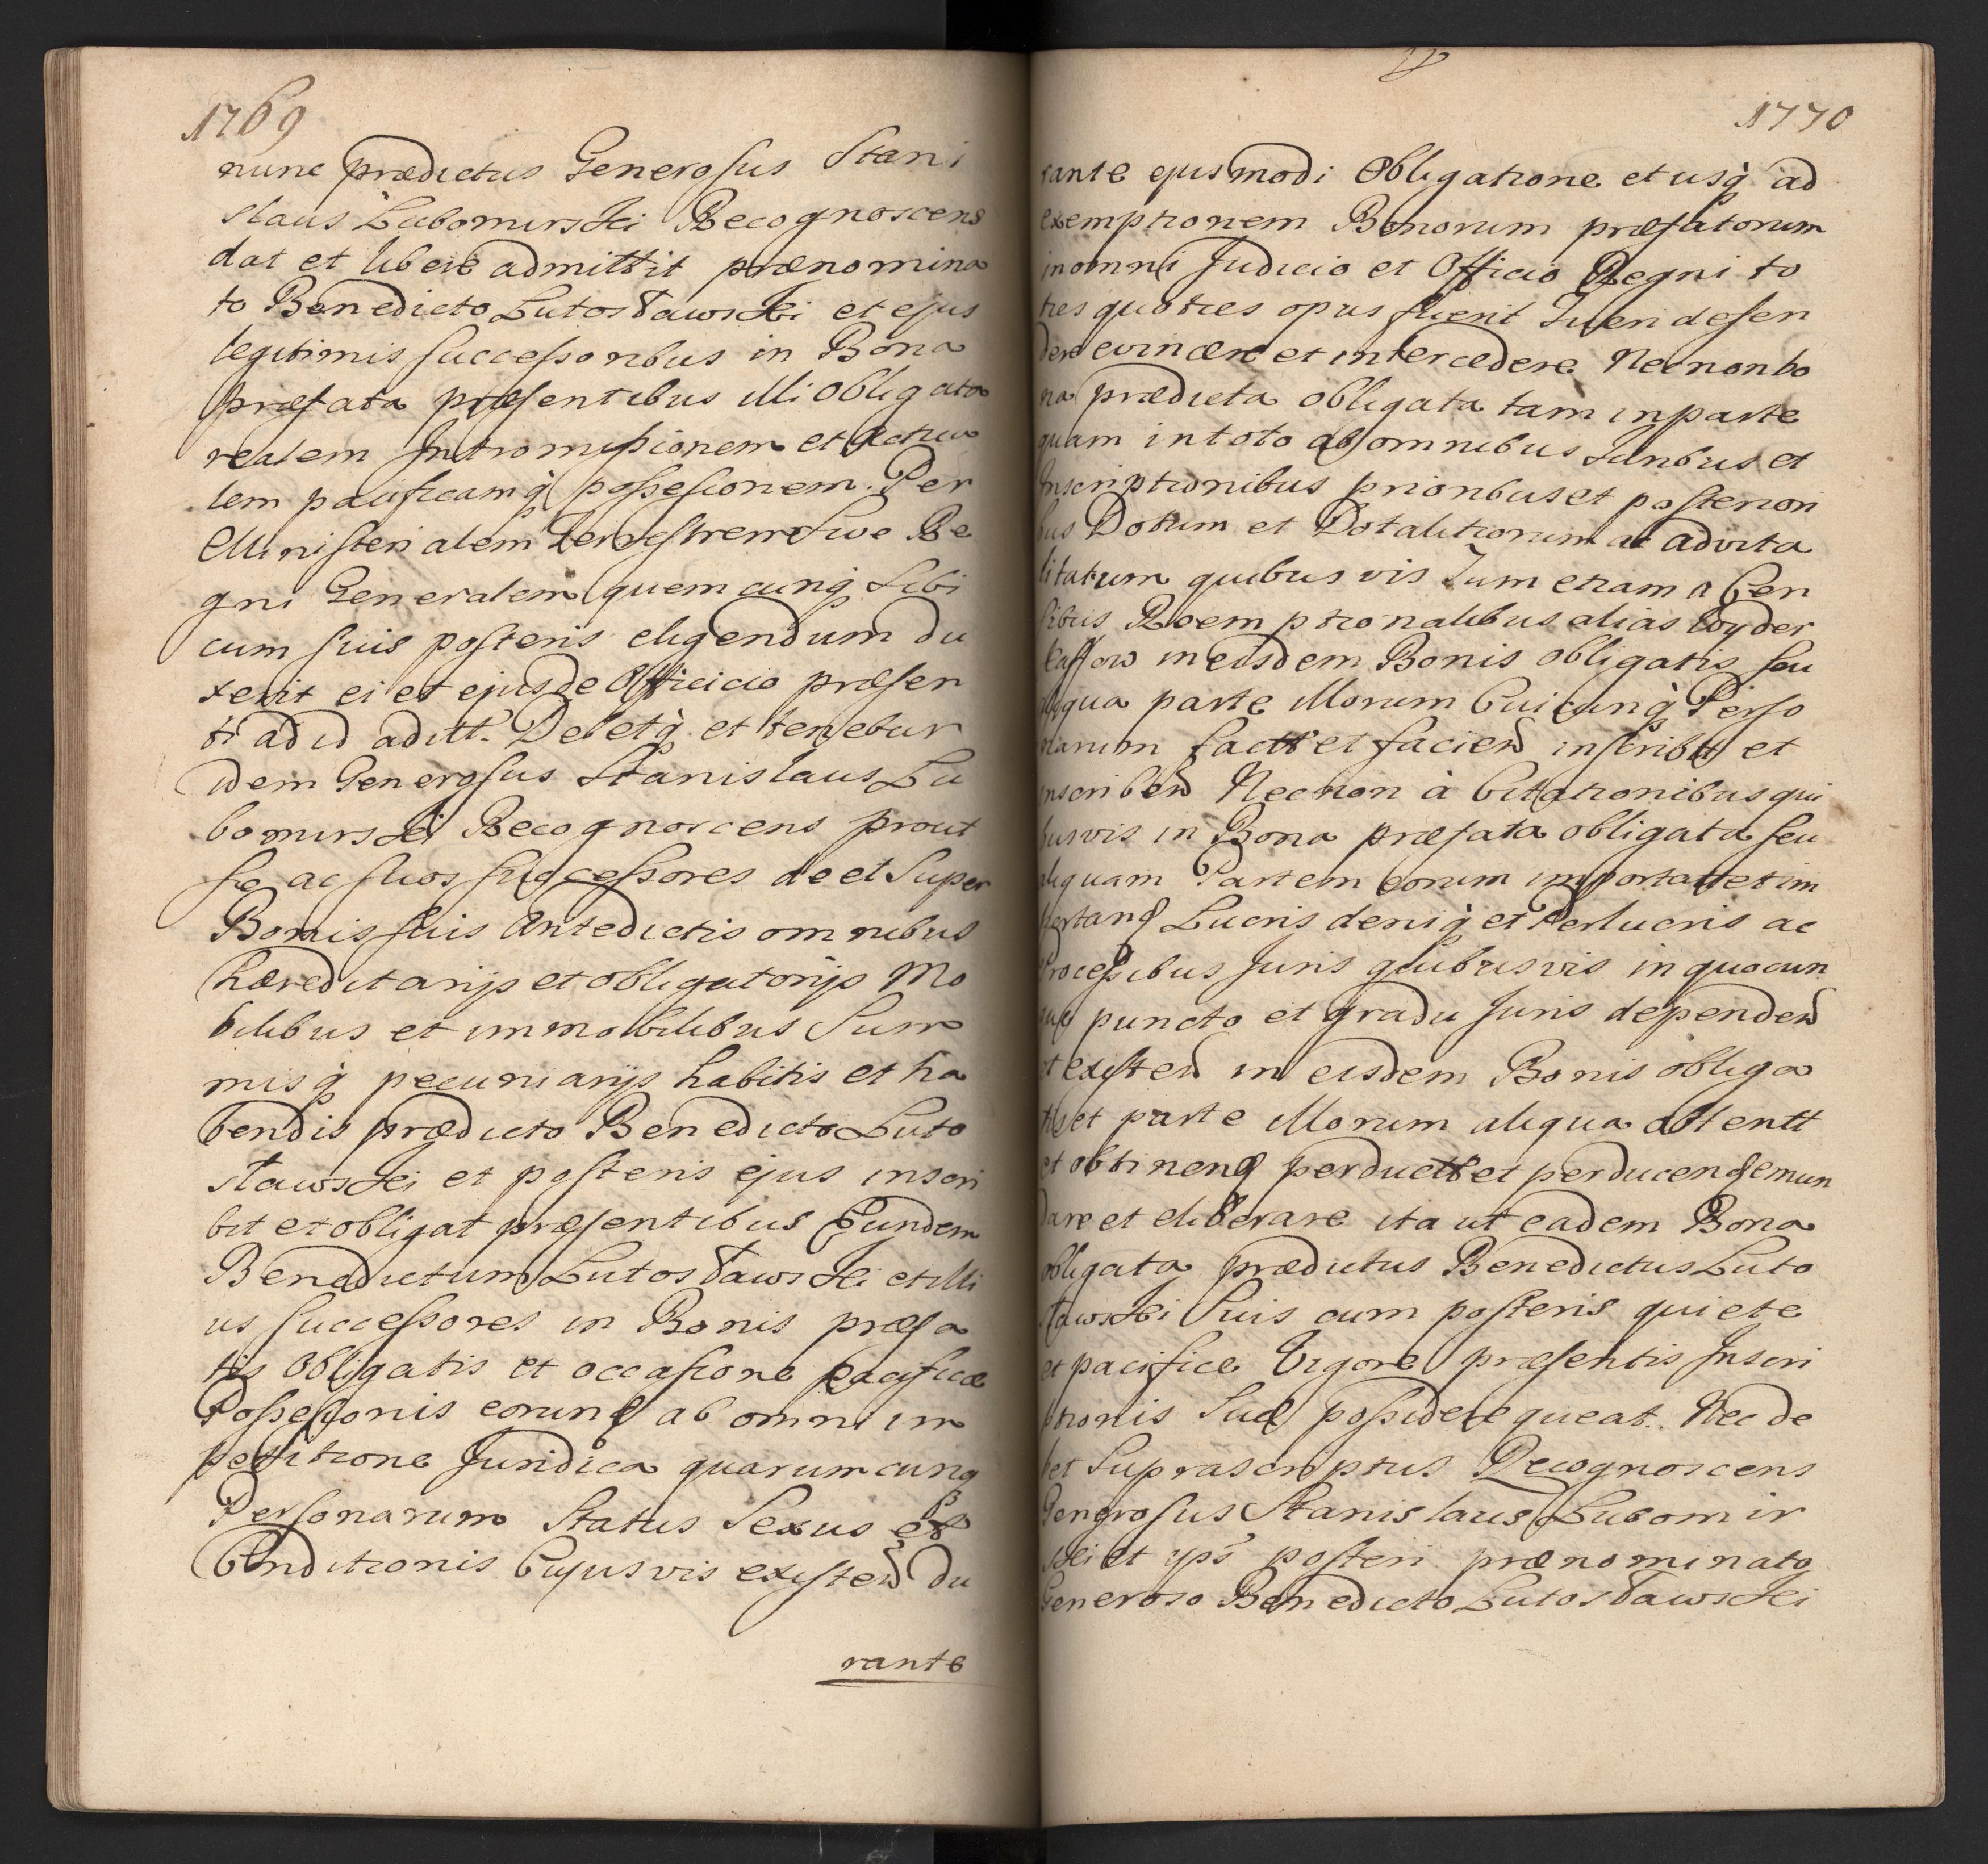 1769
nunc prædictus Generosus Stani
slaus Lubomirski Recognoscens
dat et libere admittit prænomina
to Benedicto Lutosławski et ejus
legitimis successoribus in Bona
præfata præsentibus illi obligata
realem Intromissionem et actua
lem pacificamq̀ possessionem. Per
Ministerialem Terrestrem sive Re
gni Generalem quemcunq̀ Sibi
cum suis posteris eligendum du
xerit ei et ejusde Officicio præsen
ti ad id aditt. Debetq̀ et tenebur
idem Generosus Stanislaus Lu
bomirski Recognoscens prout
se ac suos successores de et Super
Bonis suis Antedictis omnibus
hæreditarijs et obligatorijs Mo
bilibus et immobilibus Sum
misq̀ pecuniarijs habitis et ha
bendis prædicto Benedicto Luto
sławski et posteris ejus inscri
bit et obligat præsentibus Eundem
Benedictum Lutosławski et illi
us successores in Bonis præfa
tis Obligatis et occasione pacificæ
Possessionis eorund ab omni im
petitione Juridica quarumcunq
Personarum Status Sexus et
Conditionis Cujusvis existen du
rante
1770
rante ejusmodi Obligatione et usq̀ ad
exemptionem Bonorum præfatorum
in omni Judicio et Officio Regni to
ties quoties opus fuerit Tueri defen
dere evincere et intercedere Necnon bo
na prædicta obligata tam in parte
quam in toto ab omnibus Juribus et
Inscriptionibus prioribus et posteriori
bus Dotum et Dotalitiorum ac advita
litatum quibusvis Tum etiam a Cen
sibus Reemptionalibus alias Wyder
kaffow in eisdem Bonis obligatis seu
aliqua parte illorum Cuicunq̀ Perso
narum factt et facien inscribtt et
inscriben Necnon à Citationibus qui
busvis in Bona præfata obligata seu
aliquam Partem eorum importatt et im
portand Lucris deniq̀ et Perlucris ac
Processibus Juris quibusvis in quocun
que puncto et gradu Juris dependen
et existen in eisdem Bonis obliga
tis et parte illorum aliqua obtentt
et obtinend perductt et perducend emun
dare et eliberare ita ut eadem Bona
obligata prædictus Benedictus Luto
sławski Suis cum posteris quiete
et pacifice Vigore præsentis Inscri
ptionis Suæ possidere queat. Nec de
bet Suprascriptus Recognoscens
Generosus Stanislaus Lubomir
ski et ips posteri prænominato
Generoso Benedicto Lutosławski